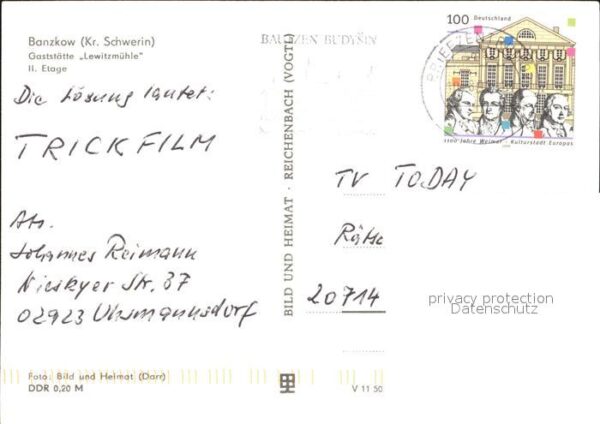 Banzkow (Kr. Schwerin)
Gaststätte „Lewitzmühle"
II. Etage
Die Lösung lautet:
TRICKFILM
Abs.
Johannes Reimann
Nieskyer Str. 37
02923 Uhsmannsdorf
Foto: Bild und Heimat (Darr)
DDR 0,20 M
BILD UND HEIMAT · REICHENBACH (VOGTL)
V 11 50
BAUTZEN BUDYŠIN
BRIEFZENTRUM
100 Deutschland
1100 Jahre Weimar · Kulturstadt Europas
TV TODAY
Rätse
20714
privacy protection
Datenschutz